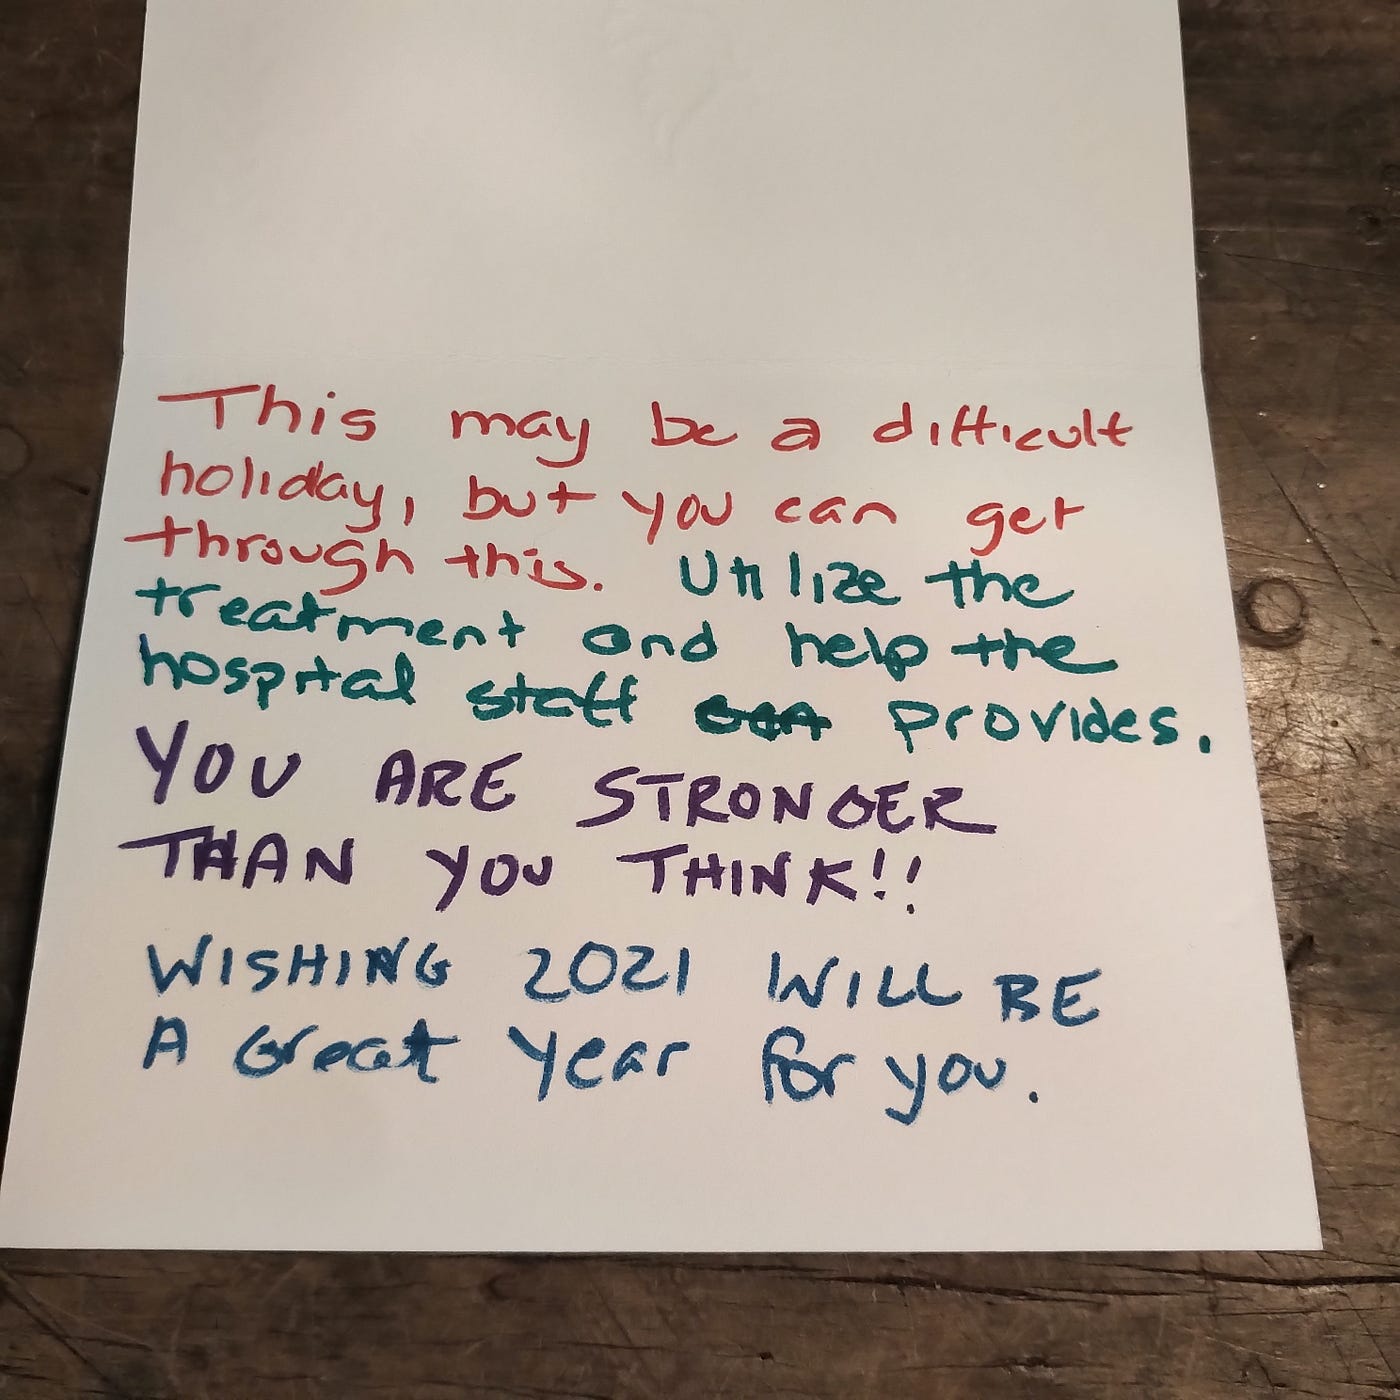 This may be a difficult
holiday, but you can get
through this. Utilize the
treatment and help the
hospital staff provides.
YOU ARE STRONGER
THAN YOU THINK!!
WISHING 2021 WILL BE
A Great Year for you.